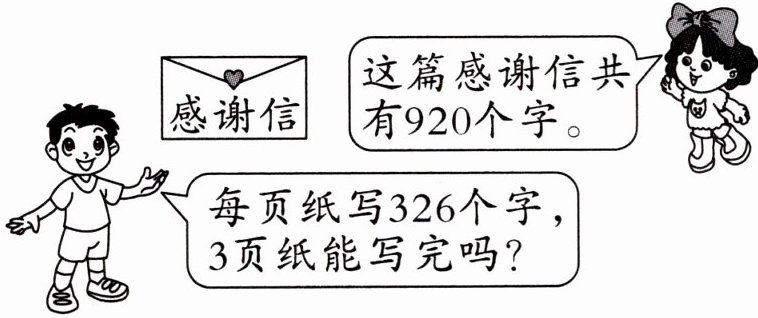 感谢信
这篇感谢信共
有920个字。
每页纸写326个字，
3页纸能写完吗？